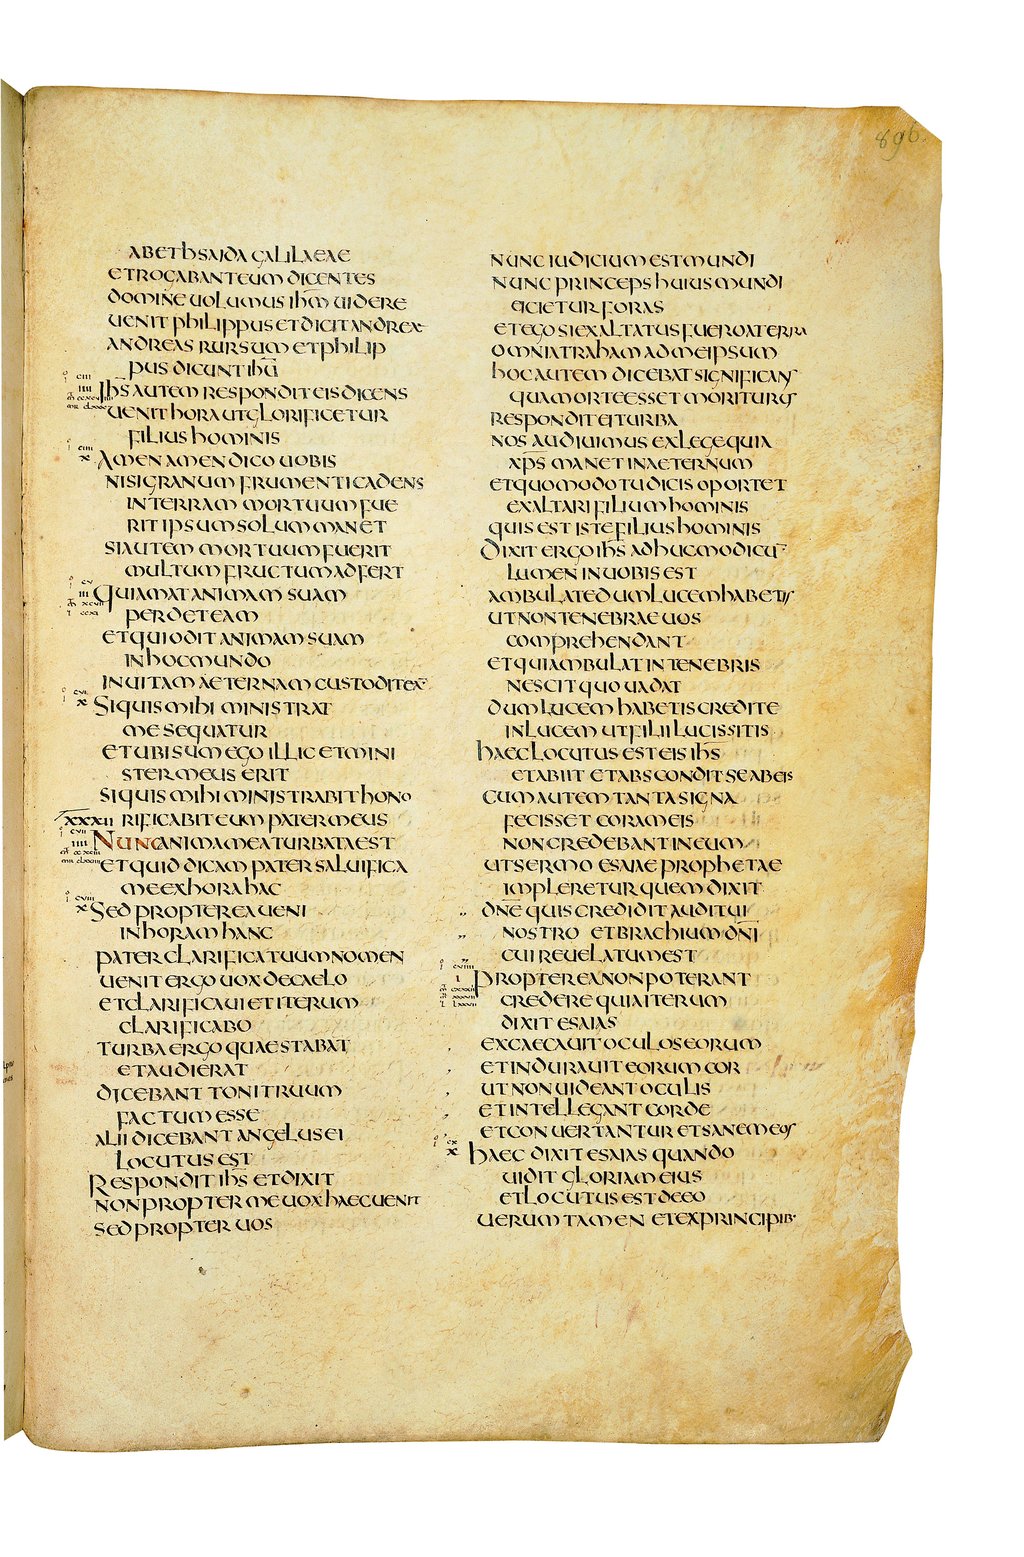 896
A BETHSAIDA GALILAEAE
ET ROGABANT EUM DICENTES
DOMINE UOLUMUS IHM UIDERE
UENIT PHILIPPUS ET DICIT ANDREAE
ANDREAS RURSUM ET PHILIP
PUS DICUNT IHU
IHS AUTEM RESPONDIT EIS DICENS
UENIT HORA UT GLORIFICETUR
FILIUS HOMINIS
AMEN AMEN DICO UOBIS
NISI GRANUM FRUMENTI CADENS
IN TERRAM MORTUUM FUE
RIT IPSUM SOLUM MANET
SI AUTEM MORTUUM FUERIT
MULTUM FRUCTUM ADFERT
QUI AMAT ANIMAM SUAM
PERDET EAM
ET QUI ODIT ANIMAM SUAM
IN HOC MUNDO
IN UITAM AETERNAM CUSTODIT EA
SI QUIS MIHI MINISTRAT
ME SEQUATUR
ET UBI SUM EGO ILLIC ET MINI
STER MEUS ERIT
SI QUIS MIHI MINISTRABIT HONO
XXXII RIFICABIT EUM PATER MEUS
NUNC ANIMA MEA TURBATA EST
ET QUID DICAM PATER SALUIFICA
ME EX HORA HAC
SED PROPTEREA UENI
IN HORAM HANC
PATER CLARIFICA TUUM NOMEN
UENIT ERGO UOX DE CAELO
ET CLARIFICAUI ET ITERUM
CLARIFICABO
TURBA ERGO QUAE STABAT
ET AUDIERAT
DICEBANT TONITRUUM
FACTUM ESSE
ALII DICEBANT ANGELUS EI
LOCUTUS EST
RESPONDIT IHS ET DIXIT
NON PROPTER ME UOX HAEC UENIT
SED PROPTER UOS
NUNC IUDICIUM EST MUNDI
NUNC PRINCEPS HUIUS MUNDI
EICIETUR FORAS
ET EGO SI EXALTATUS FUERO A TERRA
OMNIA TRAHAM AD ME IPSUM
HOC AUTEM DICEBAT SIGNIFICANS
QUA MORTE ESSET MORITURUS
RESPONDIT EI TURBA
NOS AUDIUIMUS EX LEGE QUIA
XPS MANET IN AETERNUM
ET QUOMODO TU DICIS OPORTET
EXALTARI FILIUM HOMINIS
QUIS EST ISTE FILIUS HOMINIS
DIXIT ERGO IHS ADHUC MODICU
LUMEN IN UOBIS EST
AMBULATE DUM LUCEM HABETIS
UT NON TENEBRAE UOS
COMPREHENDANT
ET QUI AMBULAT IN TENEBRIS
NESCIT QUO UADAT
DUM LUCEM HABETIS CREDITE
IN LUCEM UT FILII LUCIS SITIS
HAEC LOCUTUS EST EIS IHS
ET ABIIT ET ABSCONDIT SE AB EIS
CUM AUTEM TANTA SIGNA
FECISSET CORAM EIS
NON CREDEBANT IN EUM
UT SERMO ESAIAE PROPHETAE
IMPLERETUR QUEM DIXIT
DNE QUIS CREDIDIT AUDITUI
NOSTRO ET BRACHIUM DNI
CUI REUELATUM EST
PROPTEREA NON POTERANT
CREDERE QUIA ITERUM
DIXIT ESAIAS
EXCAECAUIT OCULOS EORUM
ET INDURAUIT EORUM COR
UT NON UIDEANT OCULIS
ET INTELLEGANT CORDE
ET CONUERTANTUR ET SANEM EOS
HAEC DIXIT ESAIAS QUANDO
UIDIT GLORIAM EIUS
ET LOCUTUS EST DE EO
UERUM TAMEN ET EX PRINCIPIB·